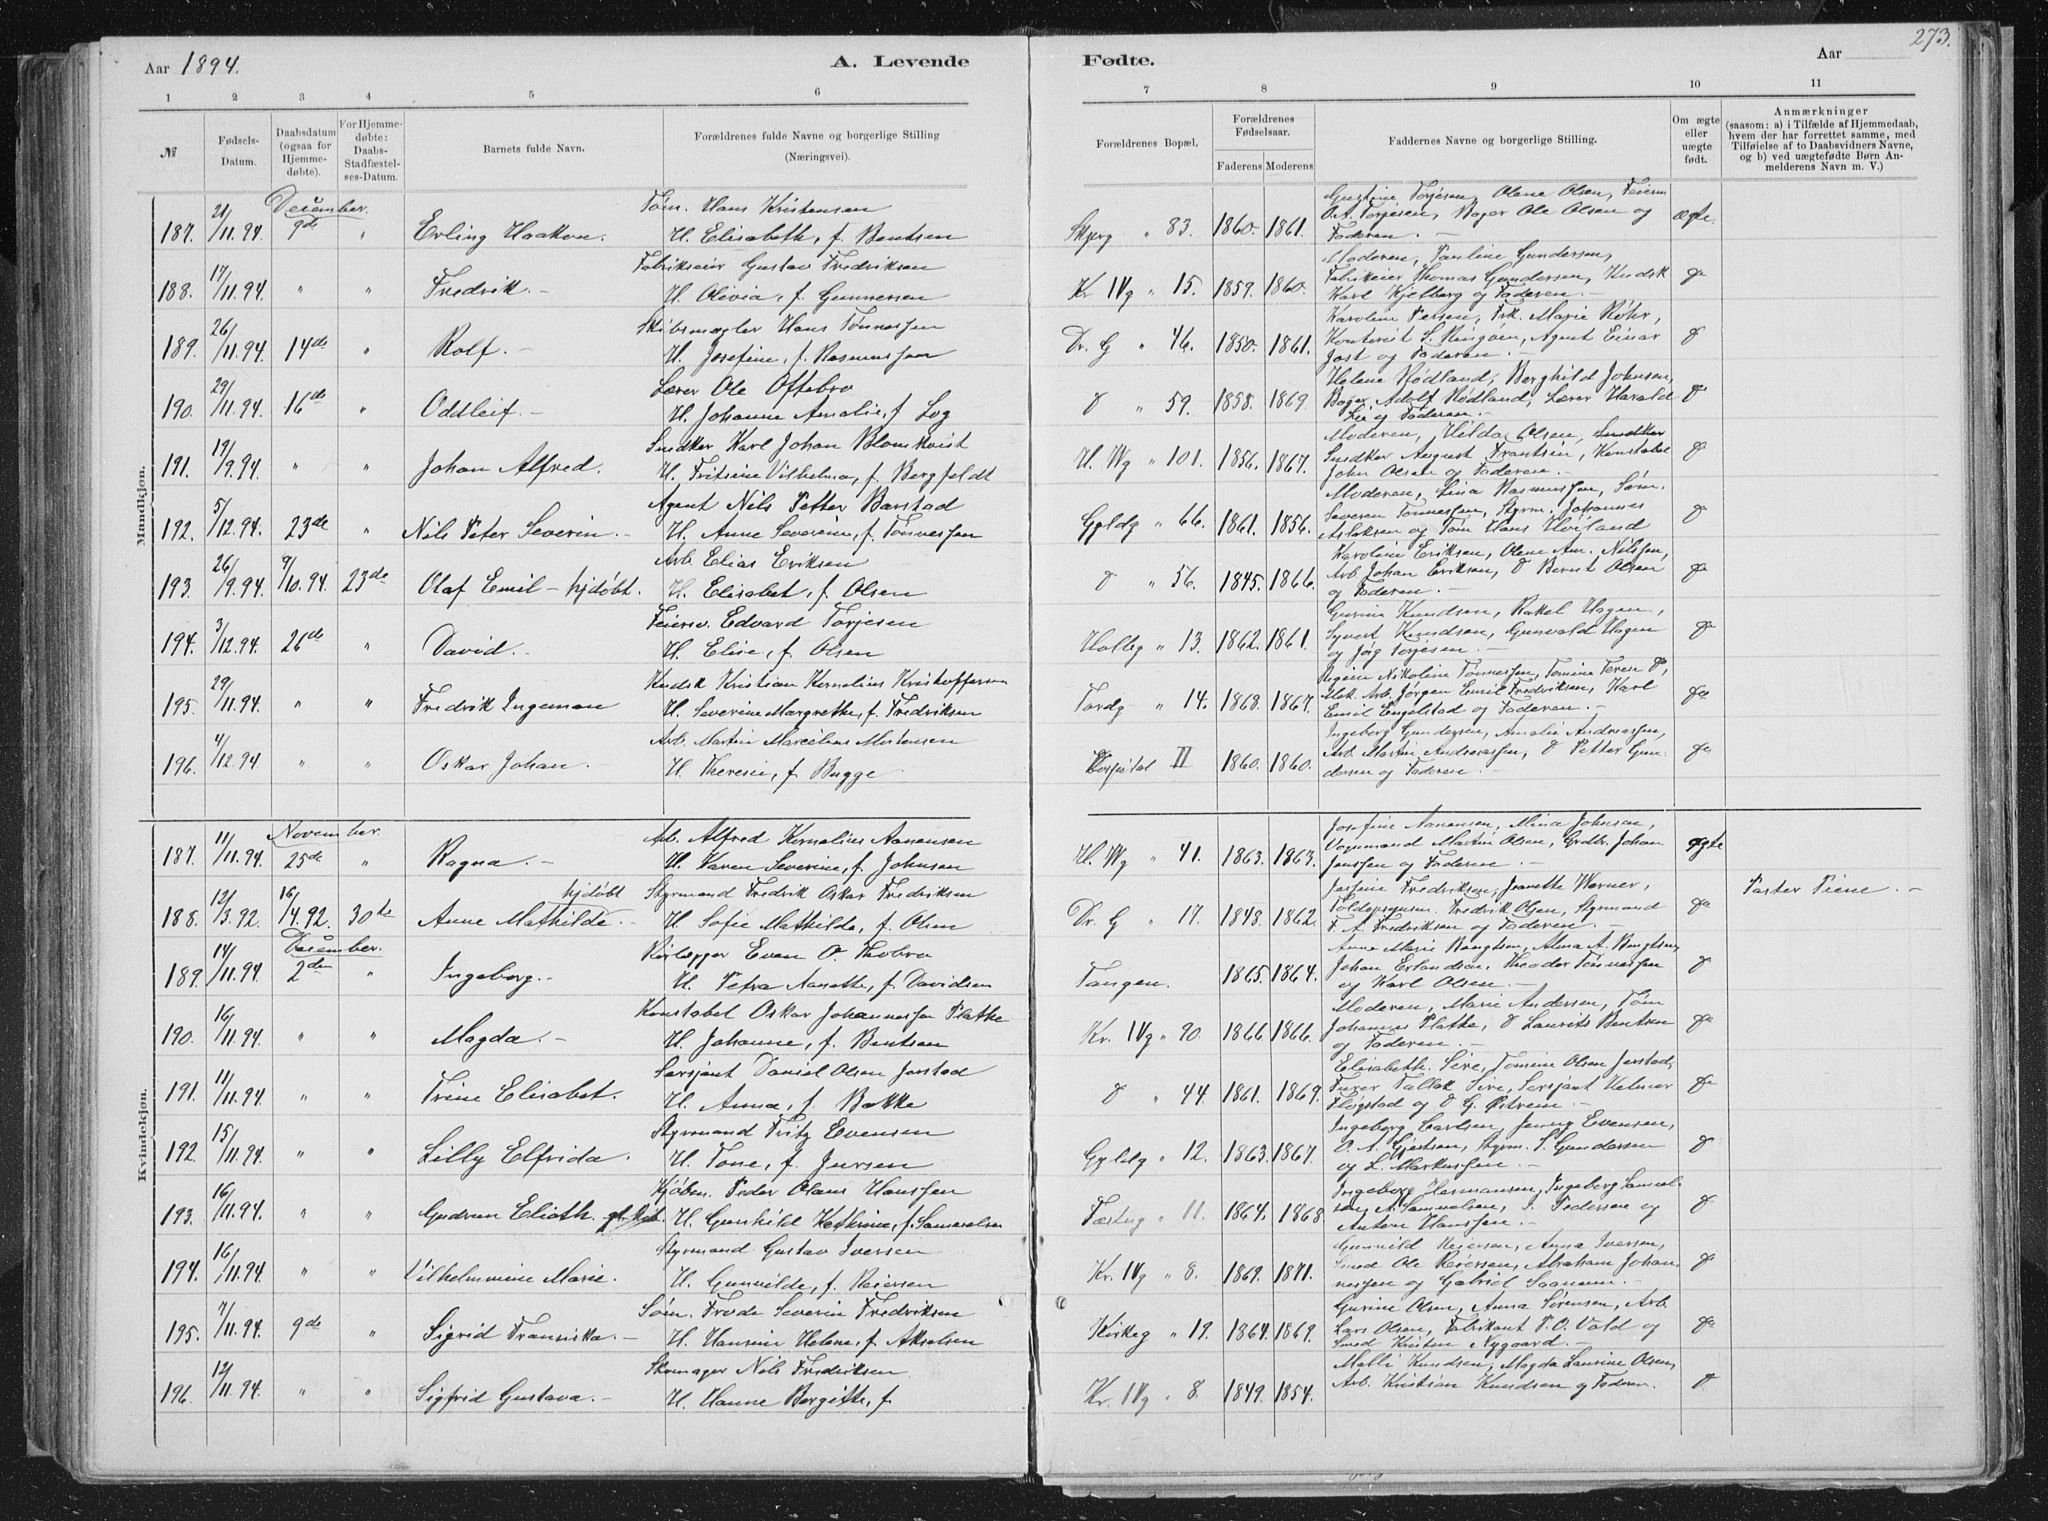 273.
Aar 1894.
A. Levende
Fødte.
Aar
1 2 3 4 5 6 7 8 9 10 11
№
Fødsels-Datum.
Daabsdatum (ogsaa for Hjemmedøbte).
For Hjemmedøbte: Daabs-Stadfæstelses-Datum.
Barnets fulde Navn.
Forældrenes fulde Navne og borgerlige Stilling
(Næringsvei).
Forældrenes Bopæl.
Forældrenes Fødselsaar.
Faderens Moderens
Faddernes Navne og borgerlige Stilling.
Om ægte eller uægte født.
Anmærkninger
(saasom: a) i Tilfælde af Hjemmedaab, hvem der har forrettet samme, med Tilføielse af to Daabsvidners Navne, og b) ved uægtefødte Børn Anmelderens Navn m. V.)
Mandkjøn.
December.
187. 21/11.94. 9de " Erling Haakon. Tøm. Hans Kristensen
H. Elisabeth, f. Bentsen
" 83. 1860. 1861. Gustine Torjesen, Olena Olsen,
O. A. Torjesen, Bager Ole Olsen og
Faderen. — ægte.
188. 17/11.94. " " Fredrik. — Fabrikeier Gustav Fredriksen
H. Olivia, f. Gunnersen
Kr IVg " 15. 1859. 1860. Moderen, Pauline Gundersen,
Fabrikeier Thomas Gundersen, Kudsk
Karl Kjelberg og Faderen. — do
189. 26/11.94. 14de " Rolf. — Skibsmægler Hans Tønnessen
H. Josefine, f. Rasmussen
Dr. G " 46. 1850. 1861. Karoline Persen, Frk. Marie Røhr,
S. Ringøen, Agent Einar
Jost og Faderen. — do
190. 29/11.94. 16de " Oddleif. — Lærer Ole Oftebro
H. Johanne Amalie, f. Log
do " 59. 1858. 1869. Helene Rødland, Borghild Johnsen,
Bager Adolf Rødland, Lærer Harald
Lie og Faderen. — do
191. 19/9.94. " " Johan Alfred. Snedker Karl Johan Blomkvist
H. Fritsine Vilhelmine, f. Bergfeldt
H. Wg " 101. 1856. 1867. Moderen, Hilda Olsen, Snedker
Snedker August Frantsen, Konstabel
John Olsen og Faderen. — do
192. 5/12.94. 23de " Nils Peter Severin. — Agent Nils Petter Barstad
H. Anne Severine, f. Tønnessen
Gyldg " 66. 1861. 1856. Moderen, Lina Rasmussen, Søm.
Severin Tønnessen, Styrm. Johannes
Aslaksen og Tøm Hans Hviland do
193. 26/9.94. 7/10.94. 23de Olaf Emil — hjdøbt. Arb. Elias Eriksen
H. Elisabet, f. Olsen
do " 56. 1845. 1866. Karoline Eriksen, Olene Am. Nilssen,
Arb. Johan Eriksen, do Bernt Olsen
og Faderen. — do
194. 3/12.94. 26de " David. — Feiersv. Edvard Torjesen
H. Elise, f. Olsen
Holbg " 13. 1862. 1861. Gurine Knudsen, Rakel Hagen,
Syvert Knudsen, Gunvald Hagen
og Jørg Torjesen. — do
195. 29/11.94. " " Fredrik Ingeman Kudsk Kristian Kornelius Kristoffersen
H. Severine Margrethe, f. Fredriksen
Tordg " 14. 1868. 1867. Regine Nikoline Tønnessen, Tomine Teresa do,
Mek. Arb. Jørgen Emil Fredriksen, Karl
Emil Engelstad og Faderen. — do
196. 4/12.94 " " Oskar Johan. — Arb. Martin Marcelius Mortensen
H. Theresie, f. Bugge.
Hospital II 1860. 1860. Ingeborg Gundersen, Amalie Andreassen,
Arb. Martin Andreassen, do Petter Gundersen
og Faderen. — do
Kvindekjøn.
November.
187. 11/11.94. 25de " Ragna. — Arb. Alfred Kornelius Aanensen
H. Karen Severine, f. Johnsen
H. Wg " 41. 1863. 1863. Josefine Aanensen, Mina Johnsen,
Vognmand Martin Olsen, Grdbr. Johan
Jenssen og Faderen. — ægte
188. 12/3.92. 16/4.92. 30te Anne Mathilde. — hjdøbt Styrmand Fredrik Oskar Fredriksen
H. Sofie Mathilde, f. Olsen
Dr. G " 17. 1848. 1862. Josefine Fredriksen, Jeanette Werner,
Toldopsynsm. Fredrik Olsen, Styrmand
F. A. Fredriksen og Faderen. — do Pastor Piene. —
December.
189. 14/11.94 2den " Ingeborg. — Even O. Thobro
H. Petra Aanette, f. Davidsen
Tangen. 1865. 1864. Anne Marie Bengtsen, Alma A. Bengtsen,
Johan Erlandsen, Theodor Tønnessen
og Karl Olsen. — do
190. 16/11.94. " " Magda. — Konstabel Oskar Johannessen Flatke
H. Johanne, f. Bentsen
Kr. IVg " 90. 1866. 1866. Moderen, Marie Andersen, Tøm
Johannes Flatke, do Laurits Bentsen
og Faderen. — do
191. 11/11.94. " " Trine Elisabet. Sersjant Daniel Olsen Jerstad
H. Anna, f. Bakke
do " 44. 1861. 1869. Elisabeth Sire, Tomine Olsen Jerstad,
Furer Tallak Sire, Sersjant Helmer
Fløgstad og do G. Østrem. — do
192. 15/11.94. " " Lilly Elfrida. Styrmand Fritz Evensen
H. Tone, f. Jursen
Gyldg " 12. 1863. 1867. Ingeborg Carlsen, Jenny Evensen,
O. A. Gjertsen, Styrm. S. Gundersen
og L. Markussen. — do
193. 16/11.94. " " Gudrun Elioth. Kjøbm. Peder Olaus Hanssen
H. Gunhild Kathrine, f. Samuelsen
Fæstng " 11. 1864. 1868 Ingeborg Hermansen, Ingeborg Samuelsen,
A. Samuelsen, S. Pedersen og
Anton Hanssen. — do
194. 16/11.94. " " Vilhelmine Marie. Styrmand Gustav Iversen
H. Gunvilde, f. Reiersen
Kr. IVg " 8. 1869. 1871. Gunvild Reiersen, Anna Iversen,
Smed Ole Reiersen, Abraham Johannessen
og Gabriel Saanum. — do
195. 7/11.94. 9de " Sigrid Fransiska. — Søm. Frode Severin Fredriksen
H. Hansine Helene, f. Akselsen
Kirkeg " 19. 1864. 1869. Gurine Olsen, Anna Sørensen, Arb.
Lars Olsen, Fabrikant P. O. Vald og
Smed Kristen Nygaard. do
196. 12/11.94. " " Sigfrid Gustava. — Skomager Nils Fredriksen
H. Hanne Bergitte, f.
Kr. IVg " 8. 1849. 1854. Malli Knudsen, Magda Laurine Olsen,
Arb. Kristian Knudsen og Faderen. do